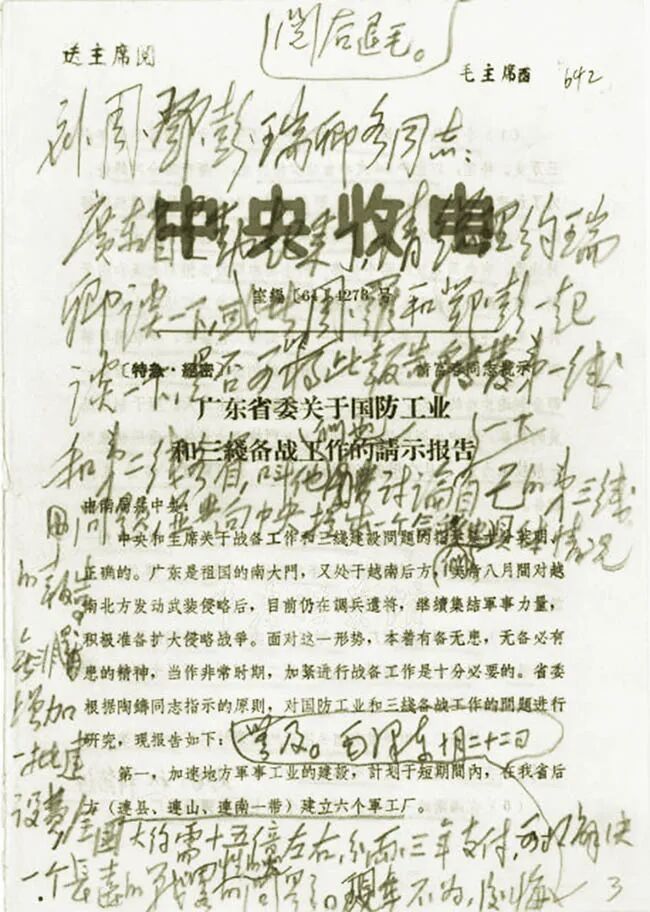 阅后退毛。
送主席阅
毛主席酉 642
刘、周、邓、彭、瑞卿各同志：
中央收电
广东省是动起来了，请总理约瑞
室编〔64〕4278号
卿谈一下，或者周、罗和邓、彭一起
谈一下，是否可将此报告转发第一线
〔特急·绝密〕 同志批示
广东省委关于国防工业
和三綫备战工作的請示报告
和第二线各省，叫他们也讨论一下自己的第三线
问题，并向中央提出一个合乎他们具体情况
的报告。无非增加一批建设费，全国大约需十五亿左右，分两三年支付，可以解决
一个长远的战略问题。现在不为，后悔
无及。毛泽东 十月二十二日
中南局幷中央：
中央和主席关于战备工作和三线建設問題的指示是十分英明、
正确的。广东是祖国的南大門，又处于越南后方，美帝八月間对越
南北方发动武装侵略后，目前仍在調兵遣将，继續集結軍事力量，
积极准备扩大侵略战爭。面对这一形势，本着有备无患，无备必有
患的精神，当作非常时期，加紧进行战备工作是十分必要的。省委
根据陶鑄同志指示的原則，对国防工业和三线备战工作的問題进行
研究，現报告如下：
第一，加速地方軍事工业的建設，計划于短期間內，在我省后
方（連县、連山、連南一带）建立六个軍工厂。
3